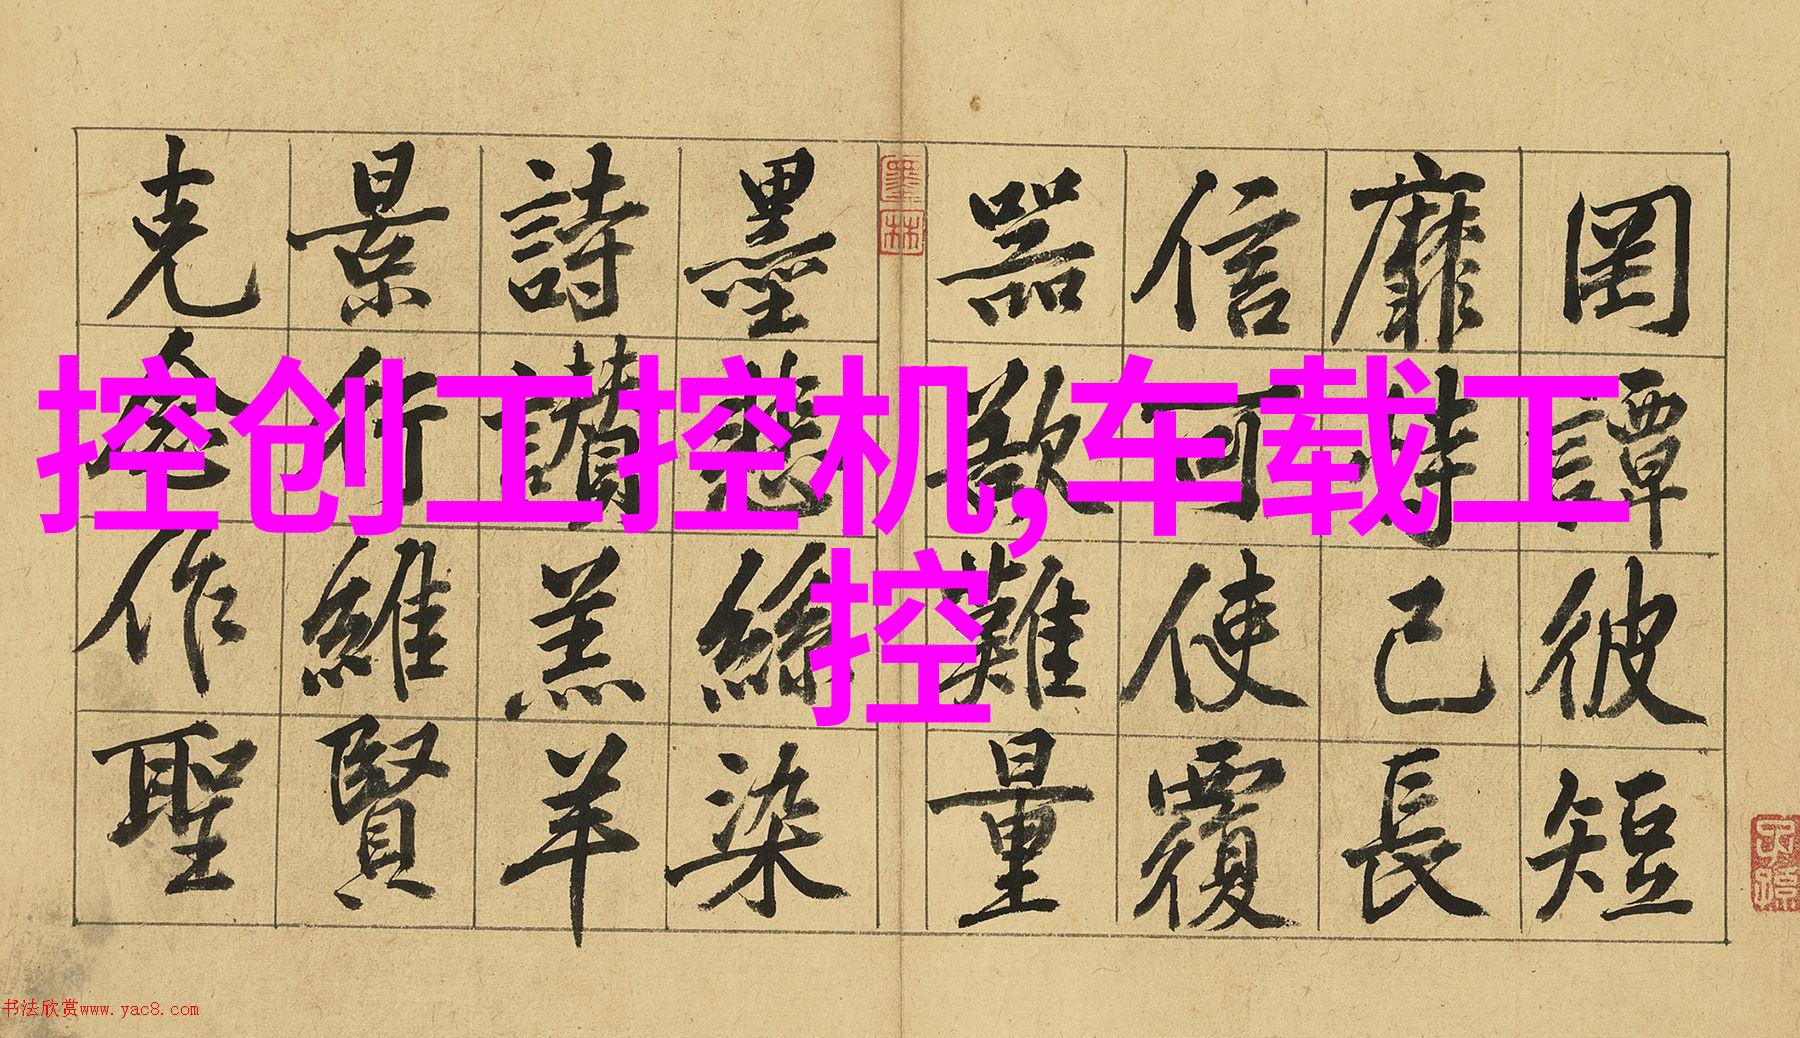 控创工控机,车载工
控
罔譚彼短
靡恃己長
信可使覆
器欲難量
墨林
墨悲絲染
詩讚羔羊
景行維賢
克念作聖
书法欣赏www.yac8.com